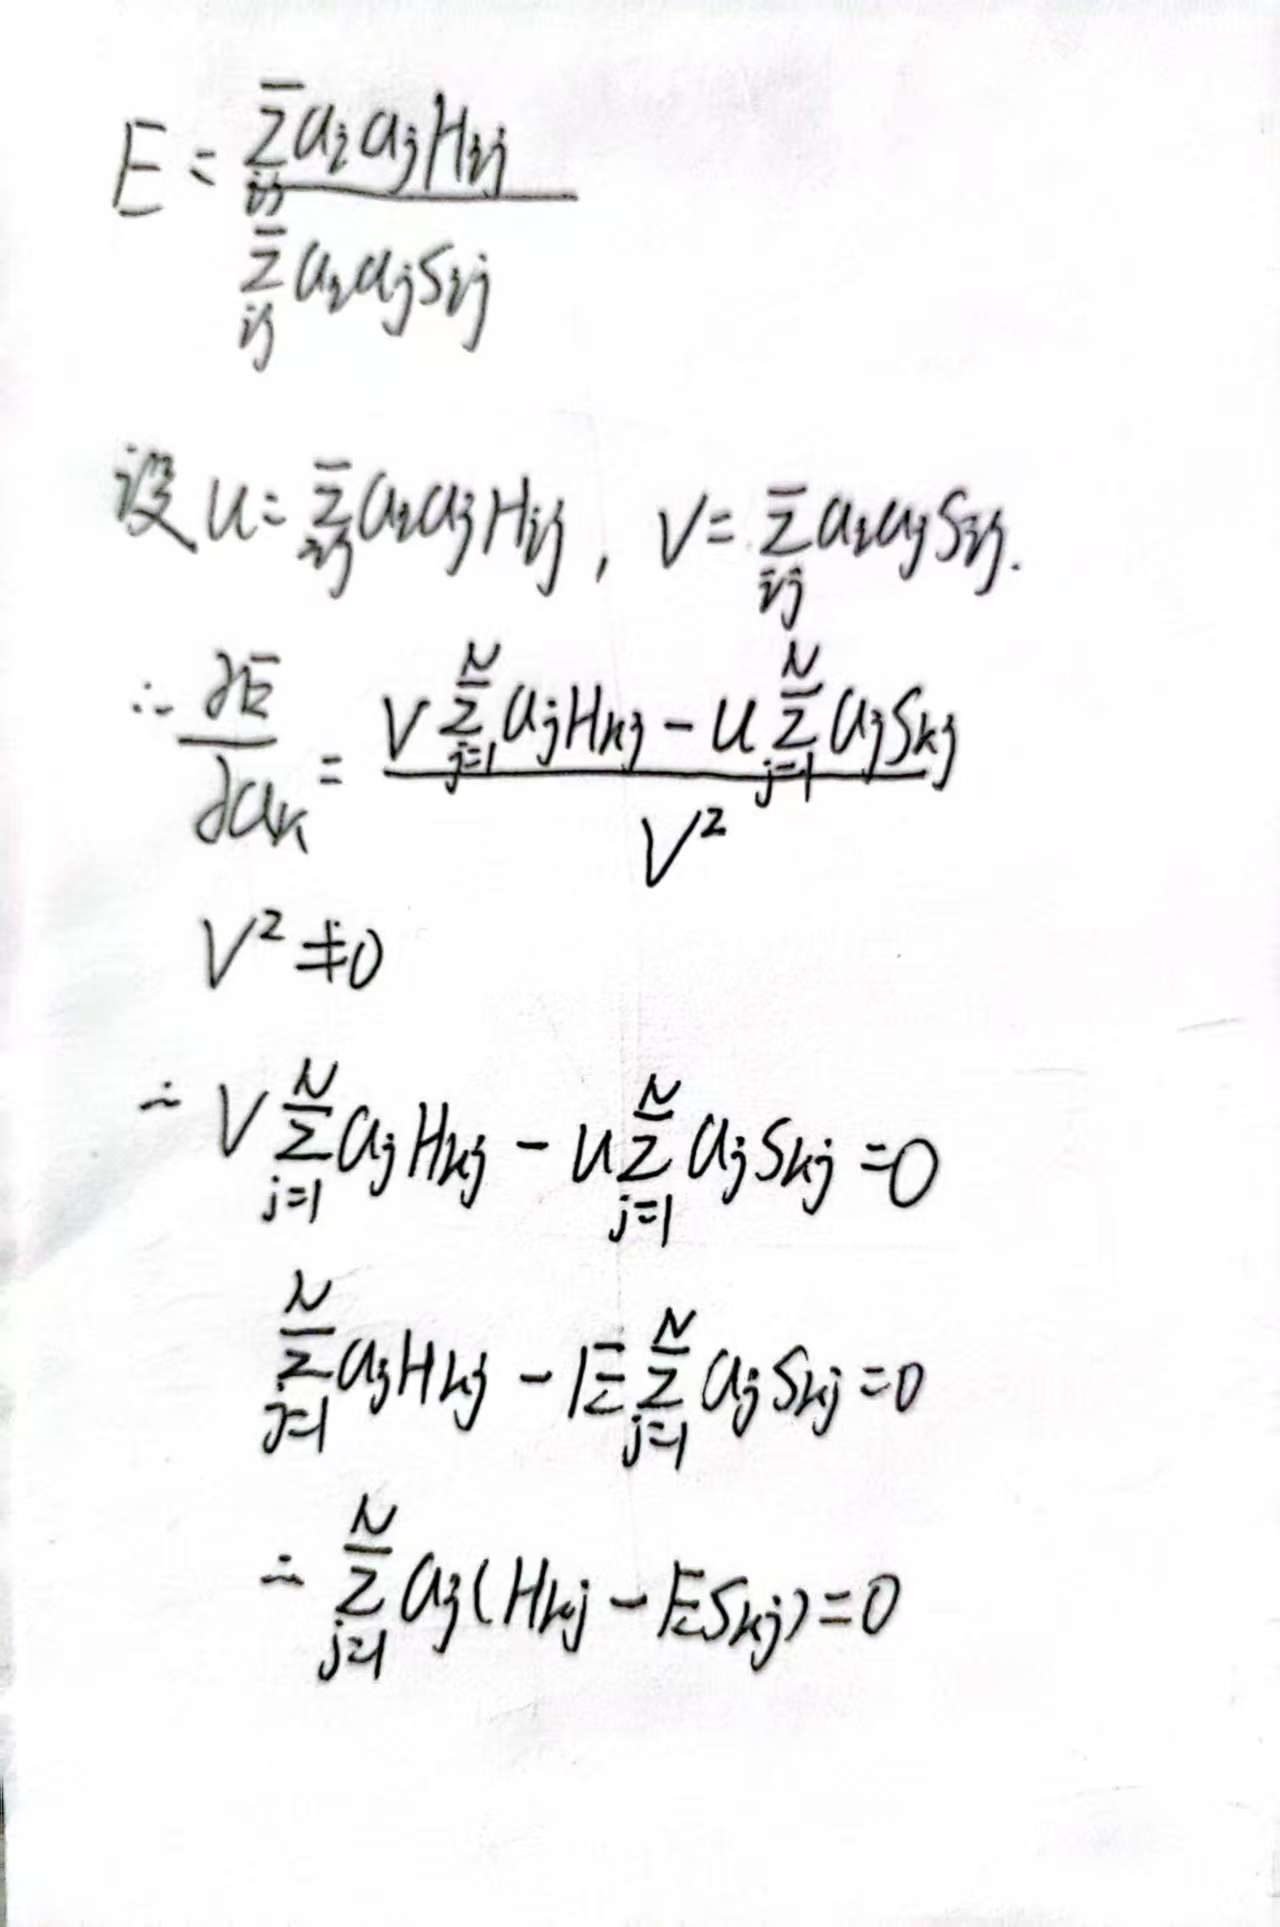 E = \frac{\sum_{ij} a_i a_j H_{ij}}{\sum_{ij} a_i a_j S_{ij}}
设 u = \sum_{ij} a_i a_j H_{ij}, V = \sum_{ij} a_i a_j S_{ij}.
∴ \frac{∂E}{∂a_k} = \frac{V \sum_{j=1}^{N} a_j H_{kj} - u \sum_{j=1}^{N} a_j S_{kj}}{V^2}
V^2 ≠ 0
∴ V \sum_{j=1}^{N} a_j H_{kj} - u \sum_{j=1}^{N} a_j S_{kj} = 0
\sum_{j=1}^{N} a_j H_{kj} - E \sum_{j=1}^{N} a_j S_{kj} = 0
∴ \sum_{j=1}^{N} a_j (H_{kj} - E S_{kj}) = 0